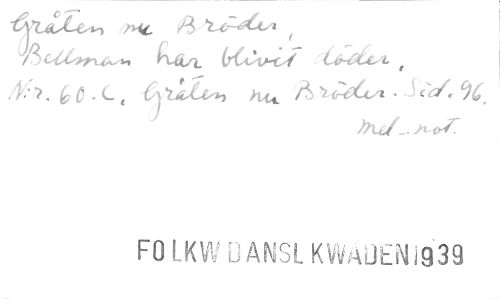 Gråten nu Bröder,
Bellman har blivit döder,
N:r. 60.C. Gråten nu Bröder. Sid. 96.
mel-not.
FOLKW DANSL KWÄDEN 1939